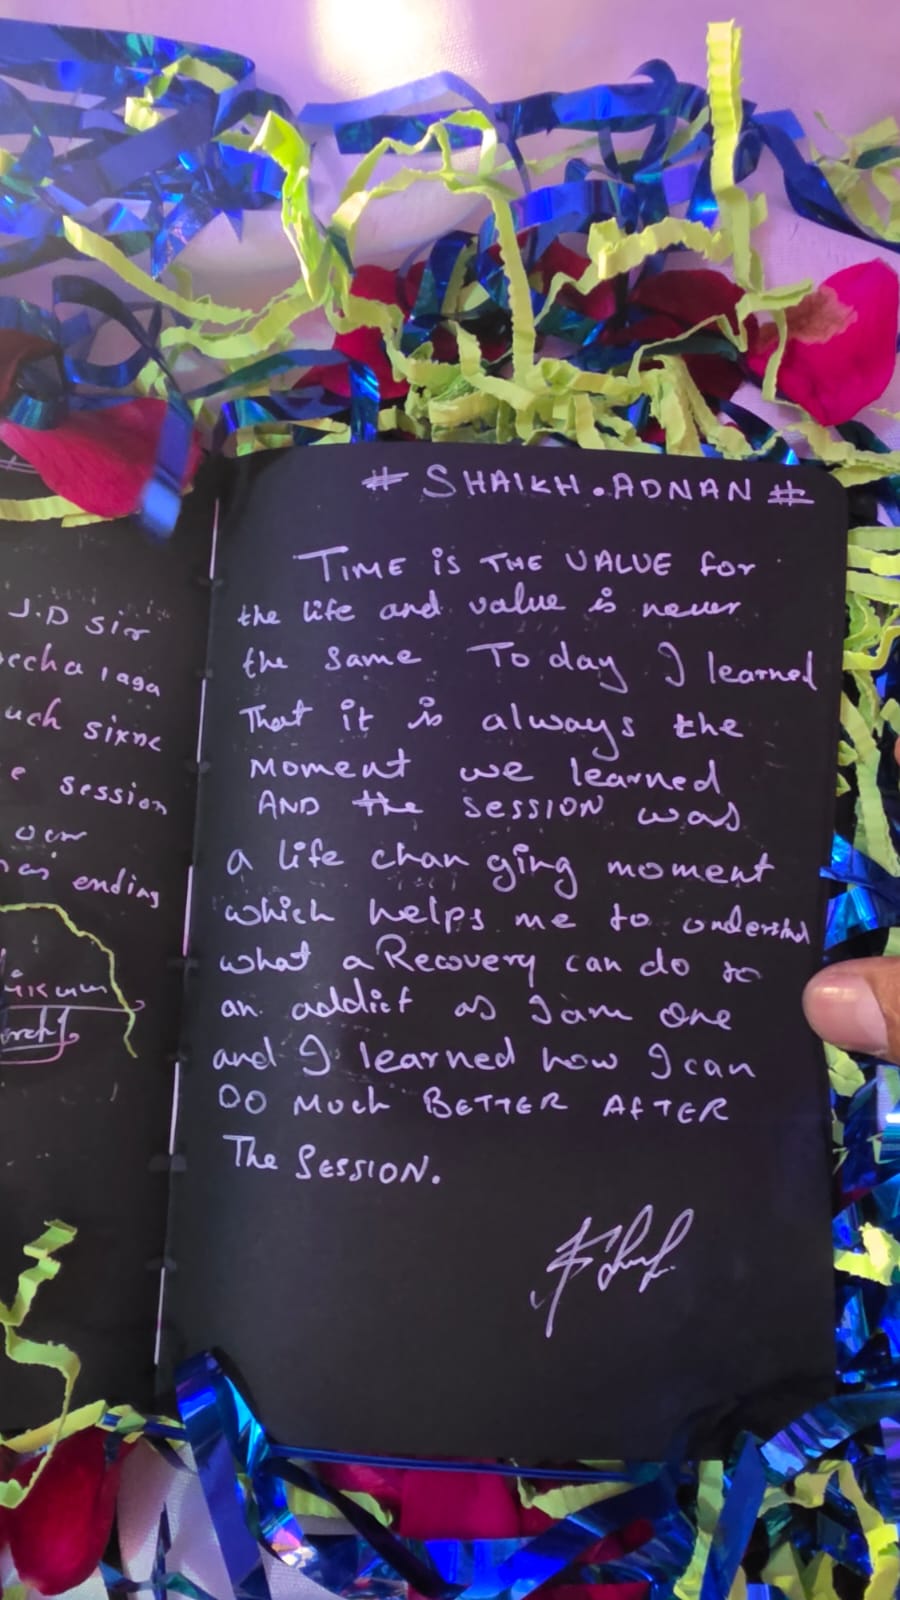 J.D sir
echa laga
uch sixne
e session
our
ending
# SHAIKH.ADNAN #
TIME is THE VALUE for
the life and value is never
the same To day I learned
That it is always the
MOMENT we learned
AND the SESSION was
a life chan ging moment
which helps me to understnd
what a Recovery can do to
an addict as I am one
and I learned how I can
DO Much BETTER AFTER
The SESSION.